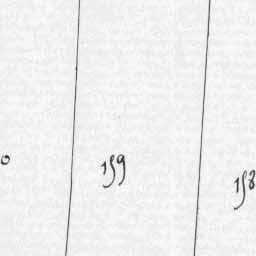 0 159 158